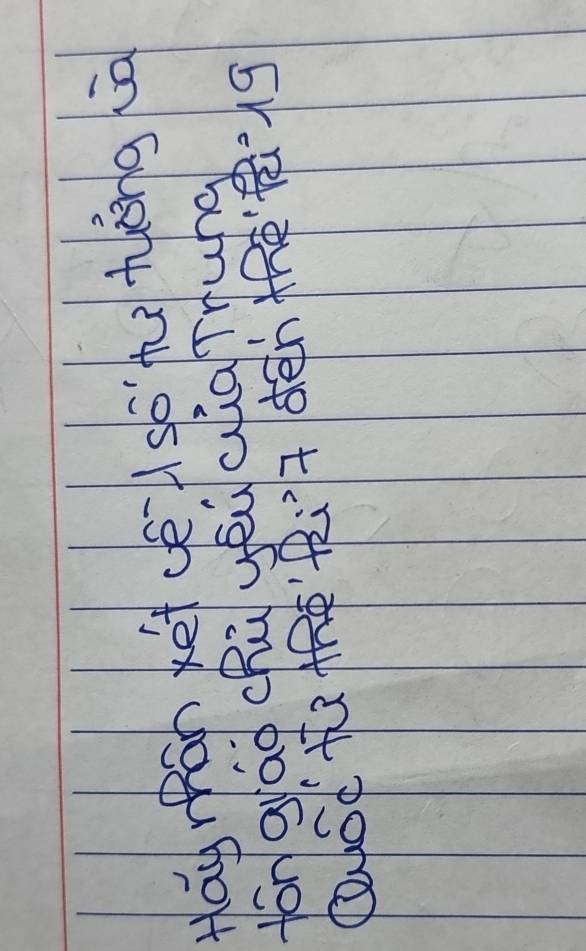 Hãy nhận xét về 1 số tư tưởng và
tôn giáo chủ yếu của Trung
Quốc từ thế kỉ 7 đến thế kỉ 19